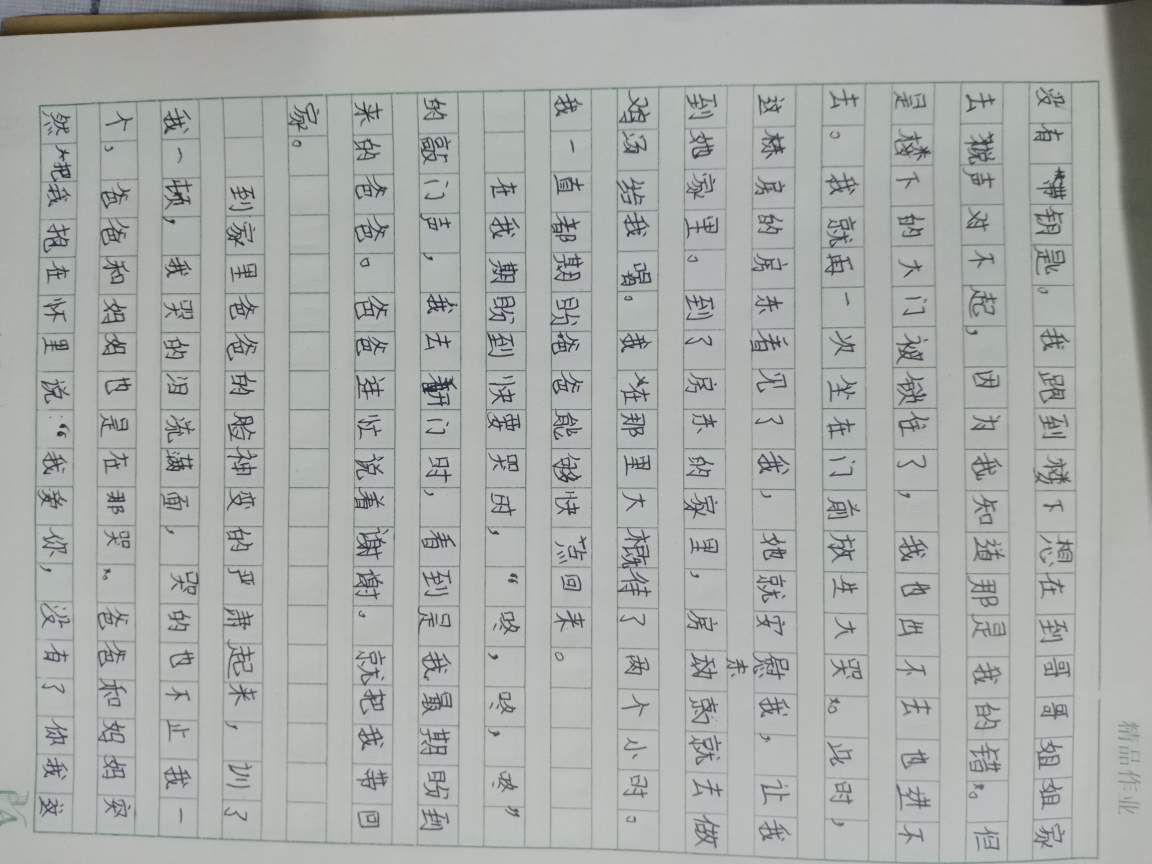 精品作业
没有带钥匙。我跑到楼下想在到哥哥姐姐家
去说声对不起，因为我知道那是我的错。但
是楼下的大门被锁住了，我也出不去也进不
去。我就再一次坐在门前放生大哭。此时，
这栋房的房东看见了我，她就安慰我，让我
到她家里。到了房东的家里，房东就去做
鸡汤给我喝。我在那里大概待了两个小时。
我一直都期盼爸爸能够快点回来。
在我期盼到快要哭时，“咚，咚，咚”
的敲门声，我去开门时，看到是我最期盼到
来的爸爸。爸爸连忙说着谢谢。就把我带回
家。
到家里爸爸的脸神变的严肃起来，训了
我一顿，我哭的泪流满面，哭的也不止我一
个，爸爸和妈妈也是在那哭。爸爸和妈妈突
然把我抱在怀里说：“我爱你，没有了你我这